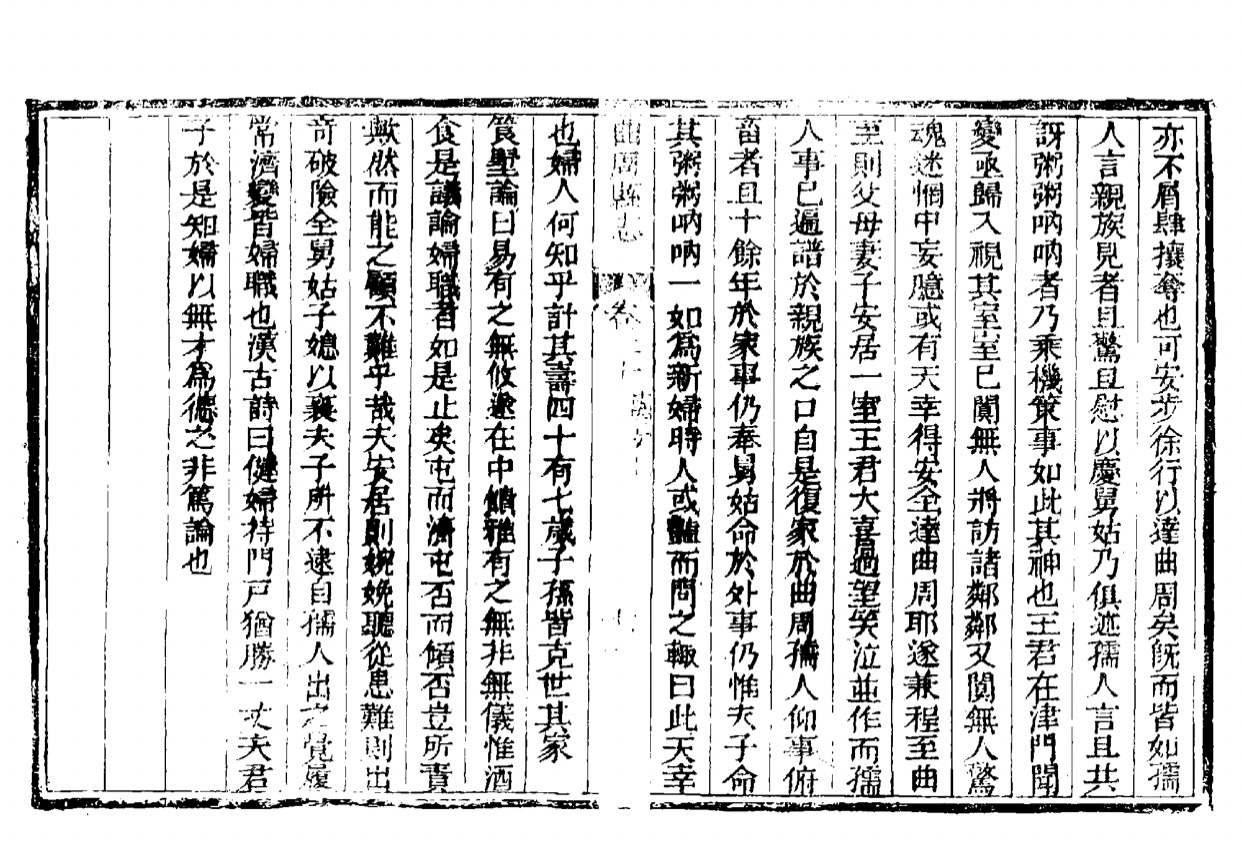 亦不屑肆攘奪也可安步徐行以達曲周矣旣而皆如孺
人言親族見者且驚且慰以慶舅姑乃俱述孺人言且共
訝粥粥吶吶者乃乘機策事如此其神也王君在津門聞
變亟歸入視其室室已闃無人將訪諸鄰鄰又闃無人驚
魂迷惘中妄臆或有天幸得安全達曲周耶遂兼程至曲
至則父母妻子安居一室王君大喜過望笑泣並作而孺
人事已遍譜於親族之口自是復家於曲周孺人仰事俯
畜者且十餘年於家事仍奉舅姑命於外事仍惟夫子命
其粥粥吶吶一如為新婦時人或而問之輒曰此天幸
曲周縣志
卷二十
也婦人何知乎計其壽四十有七歲子孫皆克世其家
篔墅論曰易有之無攸遂在中饋雅有之無非無儀惟酒
食是議論婦職者如是止矣屯而濟屯否而傾否豈所責
歟然而能之顧不難乎哉夫安居則婉娩聽從患難則出
奇破險全舅姑子媳以襄夫子所不逮自孺人出之覺履
常濟變皆婦職也漢古詩曰健婦持門戶猶勝一丈夫君
子於是知婦以無才為德之非篤論也